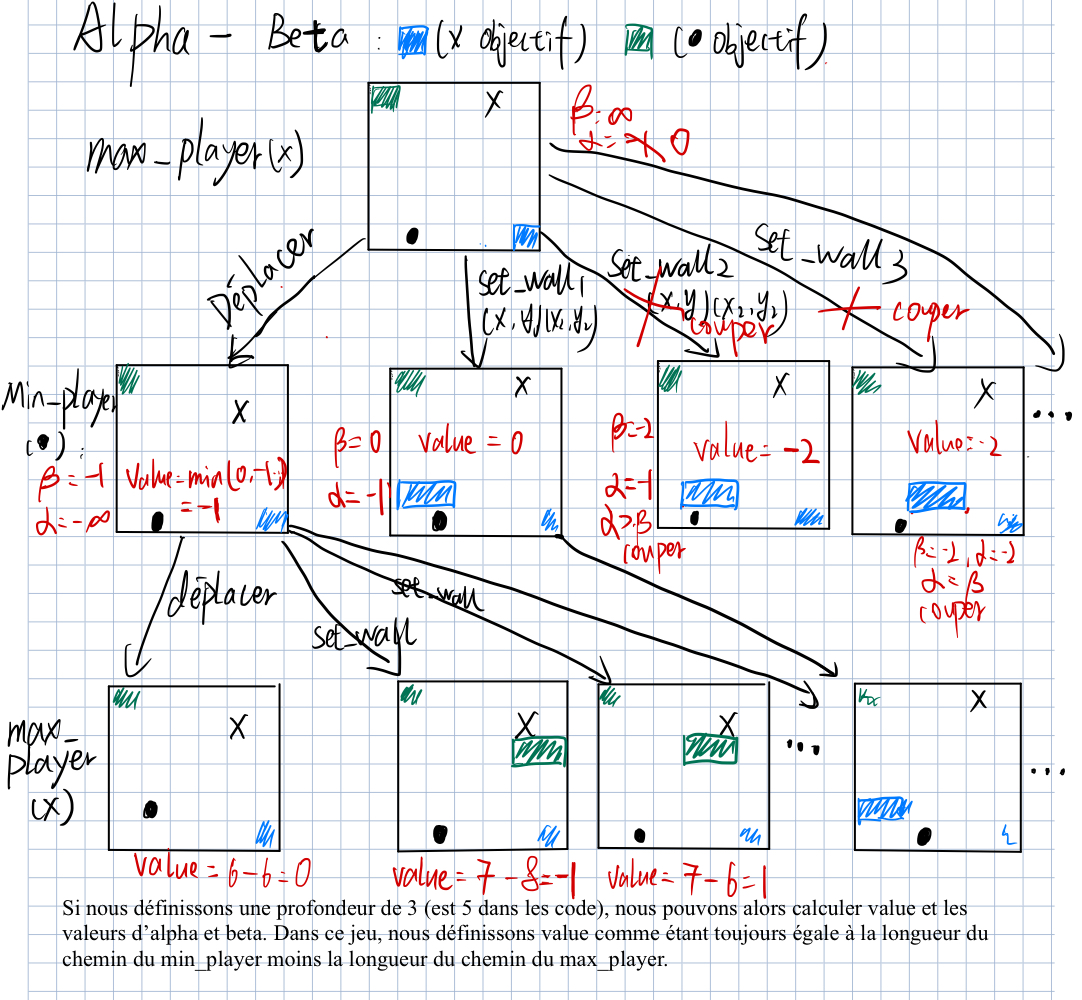 Alpha - Beta : (X objectif) (● objectif)
X
β=∞
max_player(X)
Déplacer
set_wall1
(X,Y)(X2,Y2)
set_wall2
(X,Y)(X2,Y2)
couper
set_wall3
couper
Min_player
(●):
β=-1
α=-∞
X
value=min(0,-1)
=-1
β=0
α=-1
X
value = 0
β=-2
α=-1
α>β
couper
X
value=-2
X
value=-2
...
β=-2, α=-2
α=β
couper
déplacer
set_wall
set_wall
max_
player
(X)
X
value = 6-6=0
X
value = 7-8=-1
X
value= 7-6=1
...
X
...
Si nous définissons une profondeur de 3 (est 5 dans les code), nous pouvons alors calculer value et les
valeurs d’alpha et beta. Dans ce jeu, nous définissons value comme étant toujours égale à la longueur du
chemin du min_player moins la longueur du chemin du max_player.